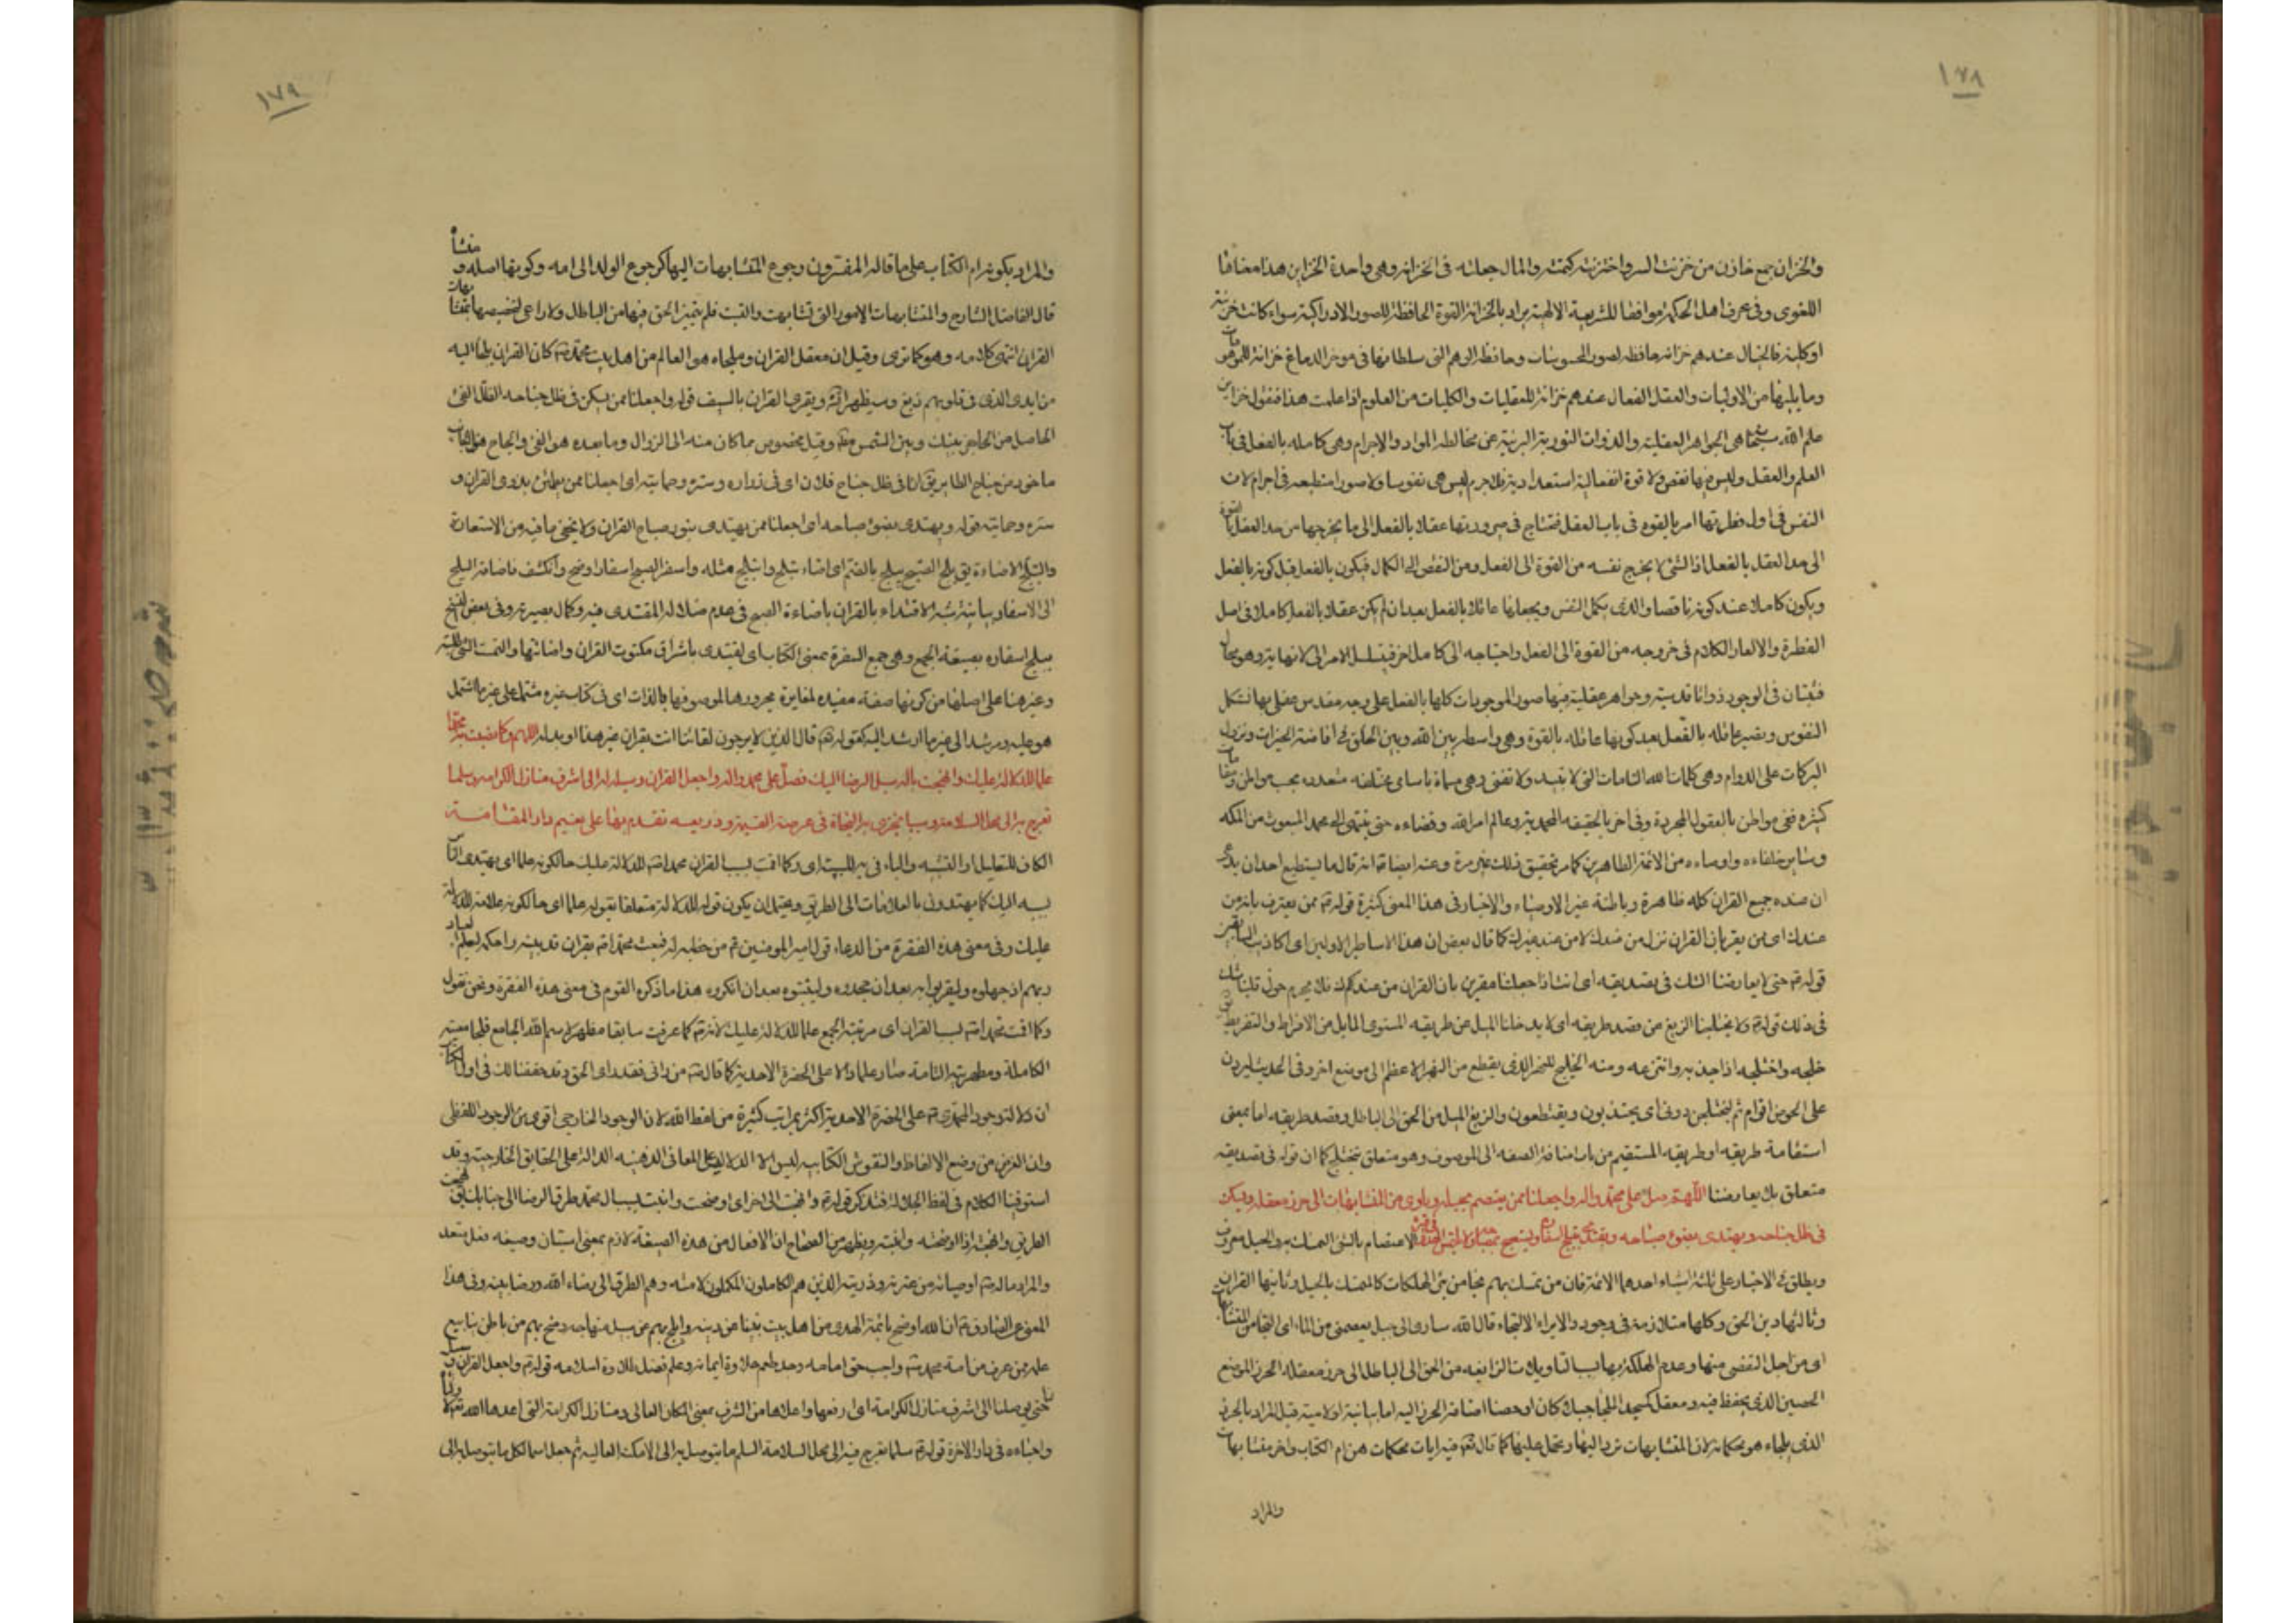 ١٧٨
والخزان جمع خازن من خزنت السر واختزنته كتمته والمال جعلته فى الخزانة وهى واحدة الخزاين هذا معناها
اللغوى وفى عرف اهل الحكمة موافقا للشريعة الالهية يراد بالخزانة القوة الحافظة للصور الادراكية سواء كانت جزئية
او كلية فالخيال عندهم خزانة حافظه لصور المحسوسات وحافظه الوهم التى سلطانها فى موخر الدماغ خزانة للموهومات
وما يليها من الاوليات والعقل الفعال عندهم خزانة للعقليات والكليات من العلوم اذا علمت هذا فنقول خزاين
علم الله سبحانه هى الجواهر العقلية والذوات النورية البريئة عن مخالطه المواد والاجرام وهى كامله بالفعل فى باب
العلم والعقل وليس فيها نقص ولا قوة انفعالية استعدادية فلا جرم ليس هى نفوسا ولا صورا منطبعه فى اجرام لان
النفس فى اول فطرتها امر بالقوه فى باب العقل فتحتاج فى صيرورتها عقلا بالفعل الى ما يخرجها من حد العقل بالقوة
الى حد العقل بالفعل اذ الشئ لا يخرج نفسه من القوة الى الفعل ومن النقص الى الكمال فيكون بالفعل قبل كونه بالفعل
ويكون كاملا عند كونه ناقصا والذى يكمل النفس ويجعلها عاقلا بالفعل بعد ان لم يكن عقلا بالفعل كاملا فى اصل
الفطرة والا لعاد الكلام فى خروجه من القوة الى الفعل واحتياجه الى كامل اخر فيتسلسل الامر الى لا نهاية وهو محال
فثبت ان فى الوجود ذواتا قدسية وجواهر عقلية فيها صور الموجودات كلها بالفعل على وجه مقدس عقلى بها تستكمل
النفوس وتصير عاقله بالفعل بعد كونها عاقله بالقوة وهى واسطة بين الله وبين الخلق فى افاضة الخيرات ونزول
البركات على الدوام وهى كلمات الله التامات التى لا تبيد ولا تنفد وهى مسماة باسامى مختلفه متعدده بحسب مواطن ومقامات
كثيره ففى مواطن بالعقول المجردة وفى اخر بالحقيقه المحمدية وعالم امر الله وقضاءه حتى ينتهى الى محمد المبعوث من المكه
وساير خلفاءه واوصياءه من الائمة الطاهرين كما مر تحقيق ذلك غير مرة وعنه ايضا انه قال ما يستطيع احد ان يدعى
ان عنده جميع القران كله ظاهرة وباطنة غير الاوصياء والاخبار فى هذا المعنى كثيرة قوله ممن يعترف بانه من
عندك اى من يقر بان القران نزل من عندك لا من عند غيرك كما قال بعض ان هذا الا اساطير الاولين اى اكاذيب السابقين
قوله حتى لا يعارضنا الشك فى تصديقه اى اذا جعلتنا مقرين بان القران من عندك فلا يحوم حول قلبنا شك
فى ذلك قوله ولا يختلجنا الزيغ عن قصد طريقه اى لا يدخلنا الميل عن طريقه المستوى المايل من الافراط والتفريط
خلجه واختلجه اذا جذبه وانتزعه ومنه الخليج للنهر الذى يقطع من النهر الاعظم الى موضع اخر وفى الحديث ليردن
على الحوض اقوام ثم ليختلجن دونى اى يجتذبون ويقتطعون والزيغ الميل من الحق الى الباطل وقصد طريقه اما بمعنى
استقامة طريقه او طريقه المستقيم من باب اضافة الصفه الى الموصوف وهو متعلق بيختلج كما ان قوله فى تصديقه
متعلق بلا يعارضنا اللهم صل على محمد واله واجعلنا ممن يعتصم بحبله وياوى من المتشابهات الى حرز معقله ويسكن
فى ظل جناحه ويهتدى بضوء صباحه ويقتدى بتبلج اسفاره ويستصبح بمصباحه ولا يلتمس الهدى فى غيره الاعتصام بالشئ التمسك به والحبل معروف
ويطلق فى الاخبار على ثلثة اشياء احدها الائمة فان من تمسك بهم نجا من تيه الهلكات كالمتمسك بالحبل وثانيها القران
وثالثها دين الحق وكلها متلازمة فى وجود والايواء الالتجاء قال الله ساوى الى جبل يعصمنى من الماء اى التجا من المتشابهات
اى من اجل التفصى منها وعدم الهلكة بها بسبب التاويلات الزايغه من الحق الى الباطل الى حرز معقله الحرز الموضع
الحصين الذى يحفظ فيه ومعقل كمسجد الملجا جبلا كان او حصنا اضافة الحرز اليه اما بيانية او لامية قيل المراد بالحرز
الذى يلجاء هو محكماته لان المتشابهات ترد اليها وتحمل عليها كما قال تعالى فيه ايات محكمات هن ام الكتاب واخر متشابهات
والمراد
١٧٩
والمراد بكونه ام الكتاب على ما قاله المفسرون رجوع المتشابهات اليها كرجوع الولد الى امه وكونها اصله ومنشاه
قال الفاضل الشارح والمتشابهات الامور التى تشابهت والتبست فلم يتميز الحق فيها من الباطل ولا داعى لتخصيصها بمتشابهات
القران انتهى كلامه وهو كما ترى وقيل ان معقل القران وملجاه هو العالم من اهل بيت محمد كان القران يلجا اليه
من ايدى الذى فى قلوبهم زيغ ويقرى القران بالسيف قوله واجعلنا ممن يسكن فى ظل جناحه الظل الفئ
الحاصل من الحاجز بينك وبين الشمس وقيل مخصوص بما كان منه الى الزوال وما بعده هو الفئ والجناح
ماخوذ من جناح الطاير يق انا فى ظل جناح فلان اى فى ذراه وستره وحمايته اى اجعلنا ممن يطمئن بذرى القران و
ستره وحمايته قوله ويهتدى بضوء صباحه اى اجعلنا ممن يهتدى بنور صباح القران ولا يخفى ما فيه من الاستعارة
والتبلج الاضاءة يق بلج الصبح يبلج بالضم اى اضاء تبلج وابتلج مثله واسفر الصبح اسفارا وضح وانكشف فاضافة التبلج
الى الاسفار بيانية شبه الاقتداء بالقران باضاءة الصبح فى عدم ضلاله المقتدى فيه وكمال بصيرته وفى بعض النسخ
بتبلج اسفاره بصيغة الجمع وهى جمع السفرة بمعنى الكتاب اى يقتدى باشراق مكتوب القران واضائتها
وغير هنا على اصلها من كونها صفة مفيده لمغايرة مجرورها لموصوفها بالذات اى فى كتاب غيره مشتملا على غير ما اشتمل
هو عليه ومرشد الى غير ما ارشد اليه كقوله تعالى قال الذين لا يرجون لقائنا ائت بقران غير هذا او بدله اللهم وكما نصبت به محمدا
علما للدلالة عليك وانهجت باله سبل الرضا اليك فصل على محمد واله واجعل القران وسيلة لنا الى اشرف منازل الكرامه وسلما
نعرج به الى محل السلامة وسببا نجزى به النجاة فى عرصة القيمة وذريعه نقدم بها على نعيم دار المقامة
الكاف للتعليل او التشبيه والباء فى به للسببية اى وكما اقمت بسبب القران محمدا للدلالة عليك حالكونه علما اى يهتدى الناس
بسببه اليك كما يهتدون بالعلامات الى الطريق ويحتمل ان يكون قوله للدلالة متعلقا بقوله علما اى حالكونه علامة للدلالة
عليك وفى معنى هذه الفقرة من الدعاء قول امير المومنين من خطبه له فبعث محمدا بقران قد بينه واحكمه ليعلم العباد
ربهم اذ جهلوه وليقروا به بعد ان جحدوه وليثبتوه بعد ان انكروه هذا ما ذكره القوم فى معنى هذه الفقرة ونحن نقول
وكما اقمت محمدا بسبب القران اى مرتبة الجمع علما للدلالة عليك لانه كما عرفت سابقا مظهر لاسم الله الجامع فلجامعيته
الكاملة ومظهريته التامة صار علما دالا على الحضرة الاحدية كما قال من رانى فقد راى الحق وقد حققنا لك فى اول الكتاب
ان دلالة وجود المحمدى على الحضرة الاحدية اكثر بمراتب كثيرة من لفظ الله لان الوجود الخارجى اقوى من الوجود اللفظى
وان الغرض من وضع الالفاظ والنقوش الكتابيه ليس الا الدلالة على المعانى الذهنيه الدالة على الحقايق الخارجية وقد
استوفينا الكلام فى لفظ الجلالة فتذكر قوله وانهجت الى اخره اى اوضحت وابنت بسبب ال محمد طرق الرضا الى جنابك يق نهجت
الطريق وانهجته اذا اوضحته وابنته ويظهر من الصحاح ان الافعال من هذه الصيغة لازم بمعنى استبان وصيغه فعل متعد
والمراد باله اوصيائه من عترته وذريته الذين هم الكاملون المكملون لامته وهم الطرق الى رضاء الله ورضا نبيه وفى هذا
المعنى عن الصادق ان الله اوضح بائمة الهدى من اهل بيت نبينا عن دينه وابلج بهم عن سبيل منهاجه وفتح بهم من باطن ينابيع
علمه فمن عرف من امة محمد واجب حق امامه وجد طعم حلاوة ايمانه وعلم فضل طلاوة اسلامه قوله واجعل القران وسيلة
لنا حتى يوصلنا الى اشرف منازل الكرامة اى ارفعها واعلاها من الشرف بمعنى المكان العالى ومنازل الكرامة التى اعدها الله لاولياءه
واحباءه فى دار الاخرة قوله سلما نعرج فيه الى محل السلامة السلم ما يتوصل به الى الامكنة العاليه ثم جعل اسما لكل ما يتوصل به الى